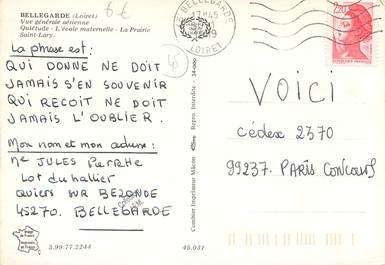 BELLEGARDE (Loiret)
Vue générale aérienne
Quiétude - L'école maternelle - La Prairie
Saint-Lary.
6€
BELLEGARDE
17H45
LOIRET
La phrase est:
QUI DONNE NE DOIT
JAMAIS S'EN SOUVENIR
QUI RECOIT NE DOIT
JAMAIS L'OUBLIER.
Mon nom et mon adresse:
JULES PIERRHE
LOT du hallier
QUIERS SUR BEZONDE
45270. BELLEGARDE
3.99.77.2244
45.031
Combier Imprimeur Mâcon
Repro. Interdite
VOICI
Cédex 2370
99237. PARIS CONCOURS